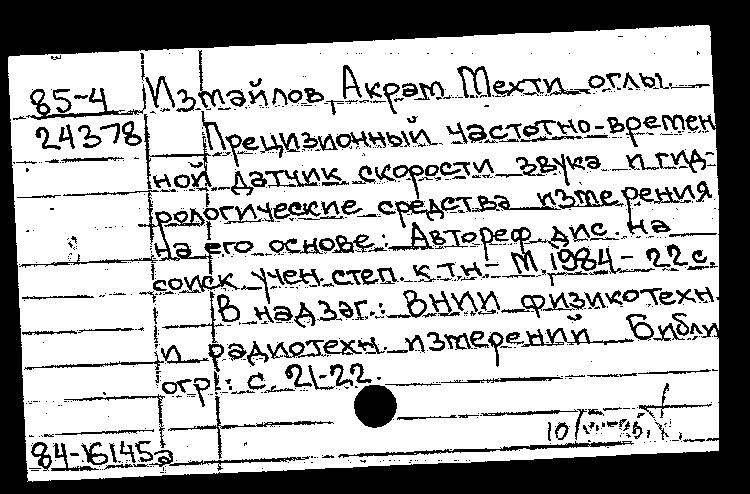 85-4 Измайлов, Акрам Мехти оглы.
24378 Прецизионный частотно-времен
ной датчик скорости звука и гид-
рологические средства измерения
на его основе: Автореф дис. на
соиск учен. степ. к.т.н.- М, 1984.- 22 с.
В надзаг.: ВНИИ физикотехн.
и радиотехн. измерений Библи
огр.: с. 21-22.
10/
84-16145а